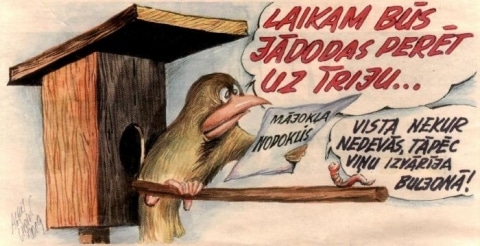 LAIKAM BŪS
JĀDODAS PERĒT
UZ ĪRIJU...
MĀJOKĻA
NODOKLIS
VISTA NEKUR
NEDEVĀS, TĀPĒC
VIŅU IZVĀRĪJA
BULJONĀ!